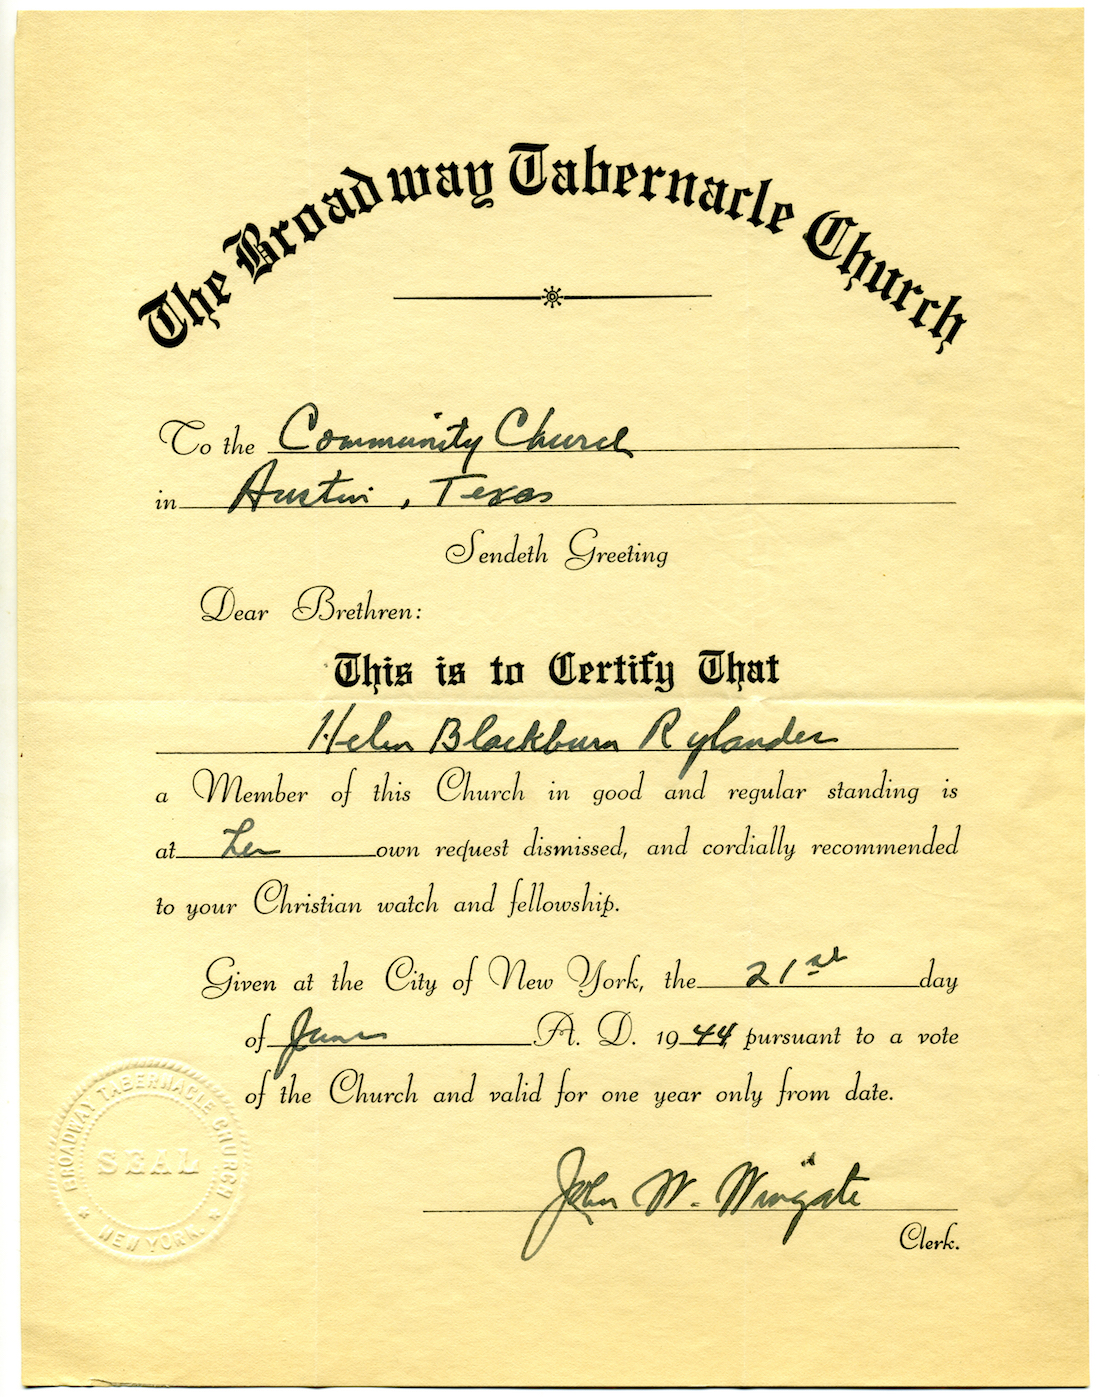 The Broadway Tabernacle Church
To the Community Church
in Austin, Texas
Sendeth Greeting
Dear Brethren:
This is to Certify That
Helen Blackburn Rylander
a Member of this Church in good and regular standing is
at her own request dismissed, and cordially recommended
to your Christian watch and fellowship.
Given at the City of New York, the 21st day
of June A. D. 1944 pursuant to a vote
of the Church and valid for one year only from date.
BROADWAY TABERNACLE CHURCH
SEAL
NEW YORK.
John W. Wingate
Clerk.